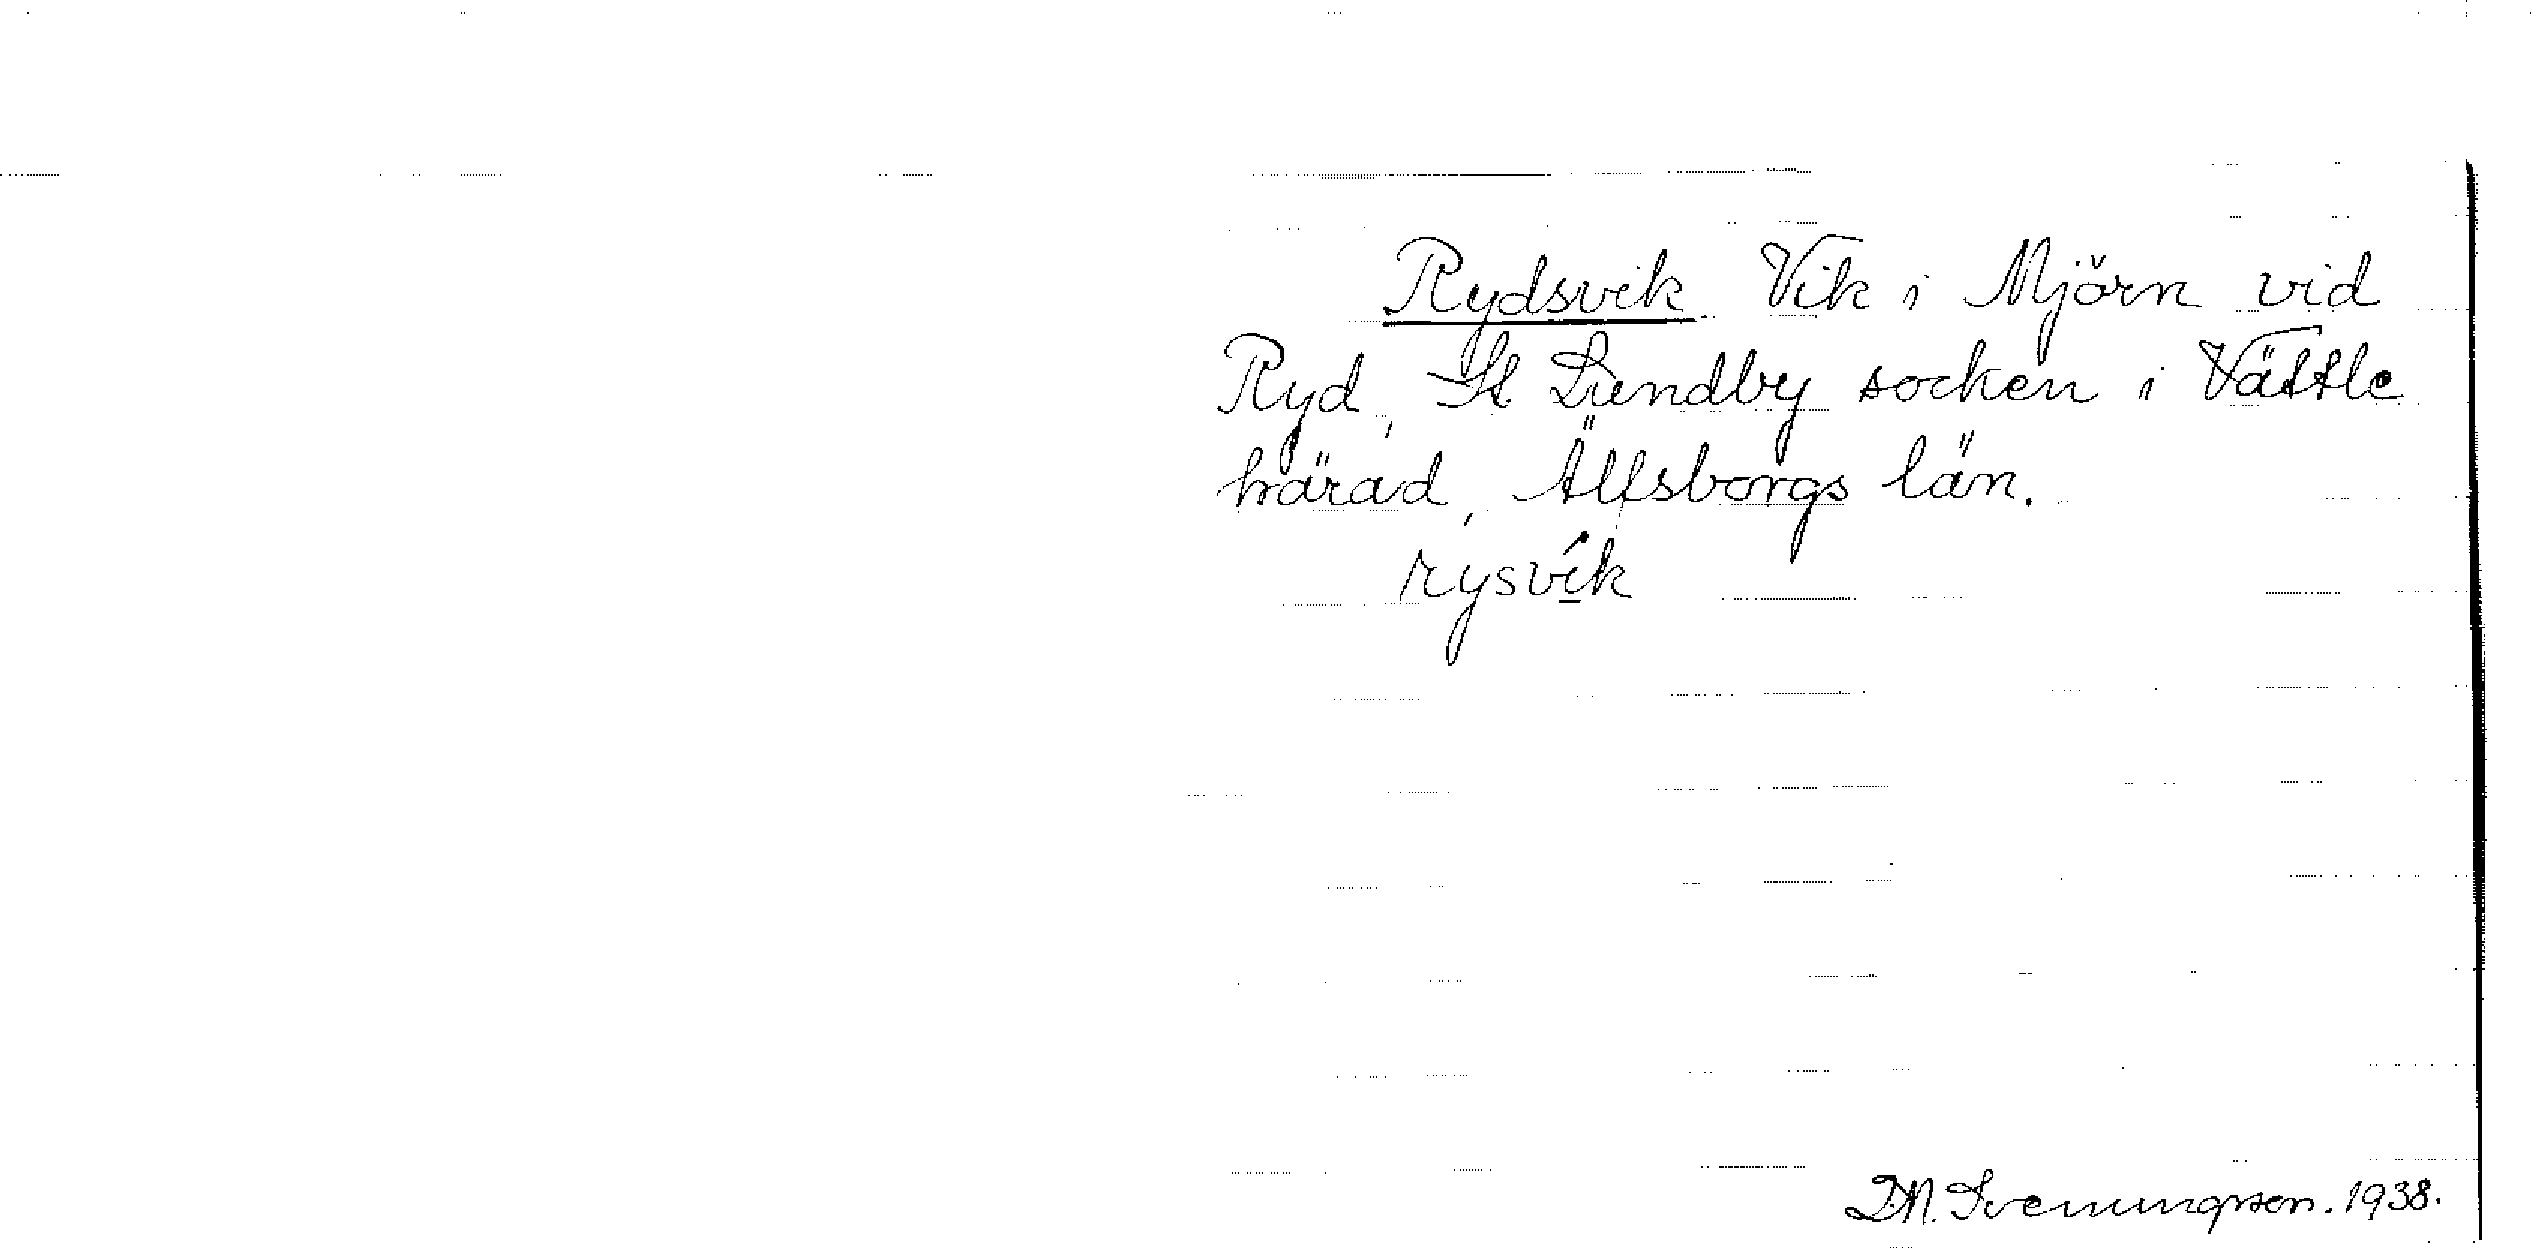 Rydsvik Vik i Mjörn vid
Ryd, St Lundby socken i Vättle
härad, Älfsborgs län.
rysvík
D.N. Svenungsson. 1938.